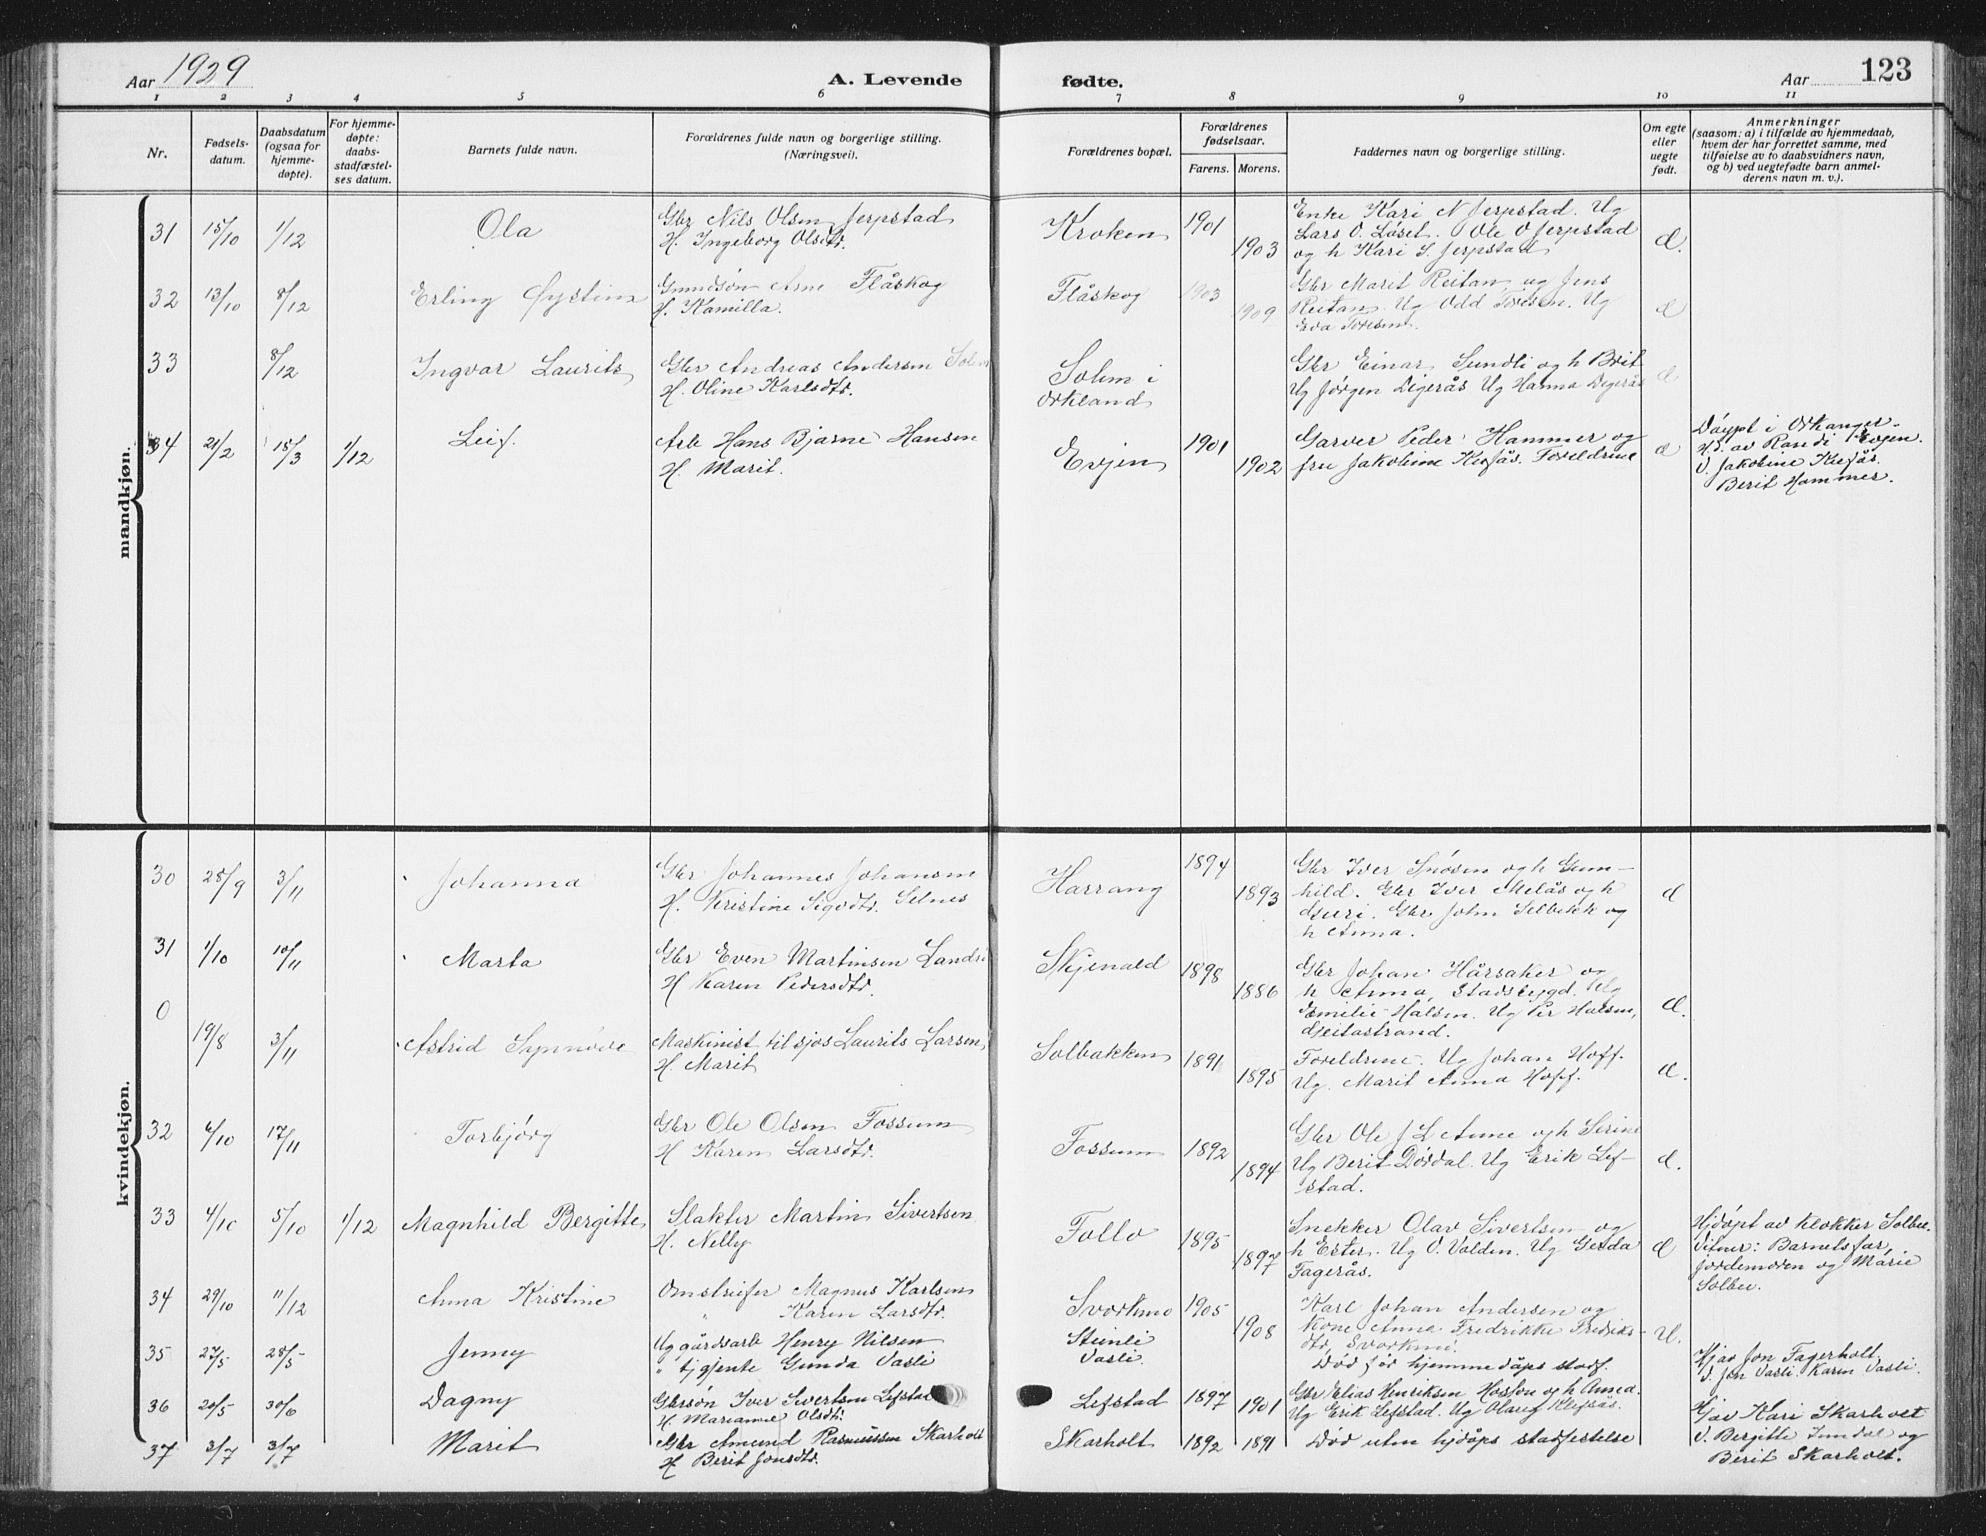 Aar 1929
A. Levende fødte.
Aar
123
1 2 3 4 5 6 7 8 9 10 11
Nr.
Fødselsdatum.
Daabsdatum (ogsaa for hjemmedøpte).
For hjemmedøpte: daabsstadfæstelses datum.
Barnets fulde navn.
Forældrenes fulde navn og borgerlige stilling. (Næringsvei).
Forældrenes bopæl.
Forældrenes fødselsaar.
Farens. Morens.
Faddernes navn og borgerlige stilling.
Om egte eller uegte født.
Anmerkninger
(saasom: a) i tilfælde av hjemmedaab,
hvem der har forrettet samme, med
tilføielse av to daabsvidners navn,
og b) ved uegtefødte barn anmel-
derens navn m. v.).
mandkjøn.
31 15/10 1/12 Ola
Gbr Nils Olsen Jerpstad
H. Ingeborg Olsdtr.
Kroken 1901 1903
Enke Kari N Jerpstad. Ug
Lars O. Løset. Ole O Jerpstad
og h Kari S. Jerpstad
d.
32 13/10 8/12 Erling Øystein
Arne Flåskog
H. Kamilla.
Flåskog 1903 1909
Gbr Marit Reitan, ug Jens
Reitan. Ug Odd Toresen. Ug
Eva Toresen.
d
33 8/12 Ingvar Laurits
Gbr Andreas Andersen Solem
H. Oline Karlsdtr.
Solem i
Orkland
Gbr Einar Sundli og h Brit
Ug Jørgen Digerås Ug Hanna Digerås
d
34 21/2 15/3 1/12 Leif.
Arb Hans Bjarne Hansen
H. Marit.
Evjen 1901 1902
Garver Peder Hammer og
fru Jakobine Kufås. Foreldrene
d
Døypt i Orkanger.
H.d. av Evjen.
V. Jakobine Kufås.
Berit Hammer.
kvindekjøn.
30 28/9 3/11 Johanna
Gbr Johannes Johansen
H. Kristine Sigvdtr. Selnes
Harrang 1894 1893
Gbr Iver Snøsen og h Gun-
hild. Gbr Iver Melås og h
Guri. Gbr John Selbekk og
h Anna.
d
31 1/10 10/11 Marta
Gbr Even Martinsen
H Karen Pedersdtr.
Skjenald 1898 1886
Gbr Johan Hårsaker og
h Anna, Stadsbygd. Ug
Emilie Halsen. Ug Per Halsen,
Geitastrand.
d.
0 19/8 3/11 Astrid Synnøve
Maskinist tilsjøs Laurits Larsen,
H. Marit
Solbakken 1891 1895
Foreldrene. Ug Johan Hoff.
Ug. Marit Anna Hoff.
d.
32 6/10 17/11 Torbjörg
Gbr Ole Olsen Fossum
H Karen Larsdtr.
Fossum 1892 1894
Gbr Ole J L Aune og h Serine
Ug Berit Dørdal. Ug Erik Lef-
stad.
d.
33 4/10 5/10 1/12 Magnhild Bergitte
Slakter Martin Sivertsen
H. Nelly
Follo 1895 1897
Snekker Olav Sivertsen og
h Ester. Ug O. Volden. Ug Gerda
Fagerås.
d
Hjdøpt av klokker Solbu.
Vitner: Barnets far,
jordemoren og Marie
Solbu.
34 29/10 11/12 Anna Kristine
Omstreifer Magnus Karlsen
" Karen Larsdtr.
Svorkmo 1905 1908
Karl Johan Andersen og
kone Anna Fredrikke Fredriks-
dtr, Svorkmo.
U.
35 27/5 28/5 Jenny
Ug gårdsarb Henry Nilsen
" tjgjente Gunda Vasli
Steinli
Vasli
Død før hjemmedåps stadf.
Hjav Jon Fagerholt
V. Jon Vasli. Karen Vasli.
36 20/5 30/6 Dagny
Gbrsøn Iver Sivertsen Lefstad
H. Marianne Olsdtr.
Lefstad 1897 1901
Gbr Elias Henriksen Hosfon og h Annea.
Ug Erik Lefstad. Ug Olaug Klefsås.
37 3/7 3/7 Marit
Gbr Amund Rasmussen Skarholt
H Berit Jonsdtr.
Skarholt 1892 1891
Død uten hjdåps stadfestelse
Hjav Kari Skarholt
V. Bergitte og
Berit Skarholt.